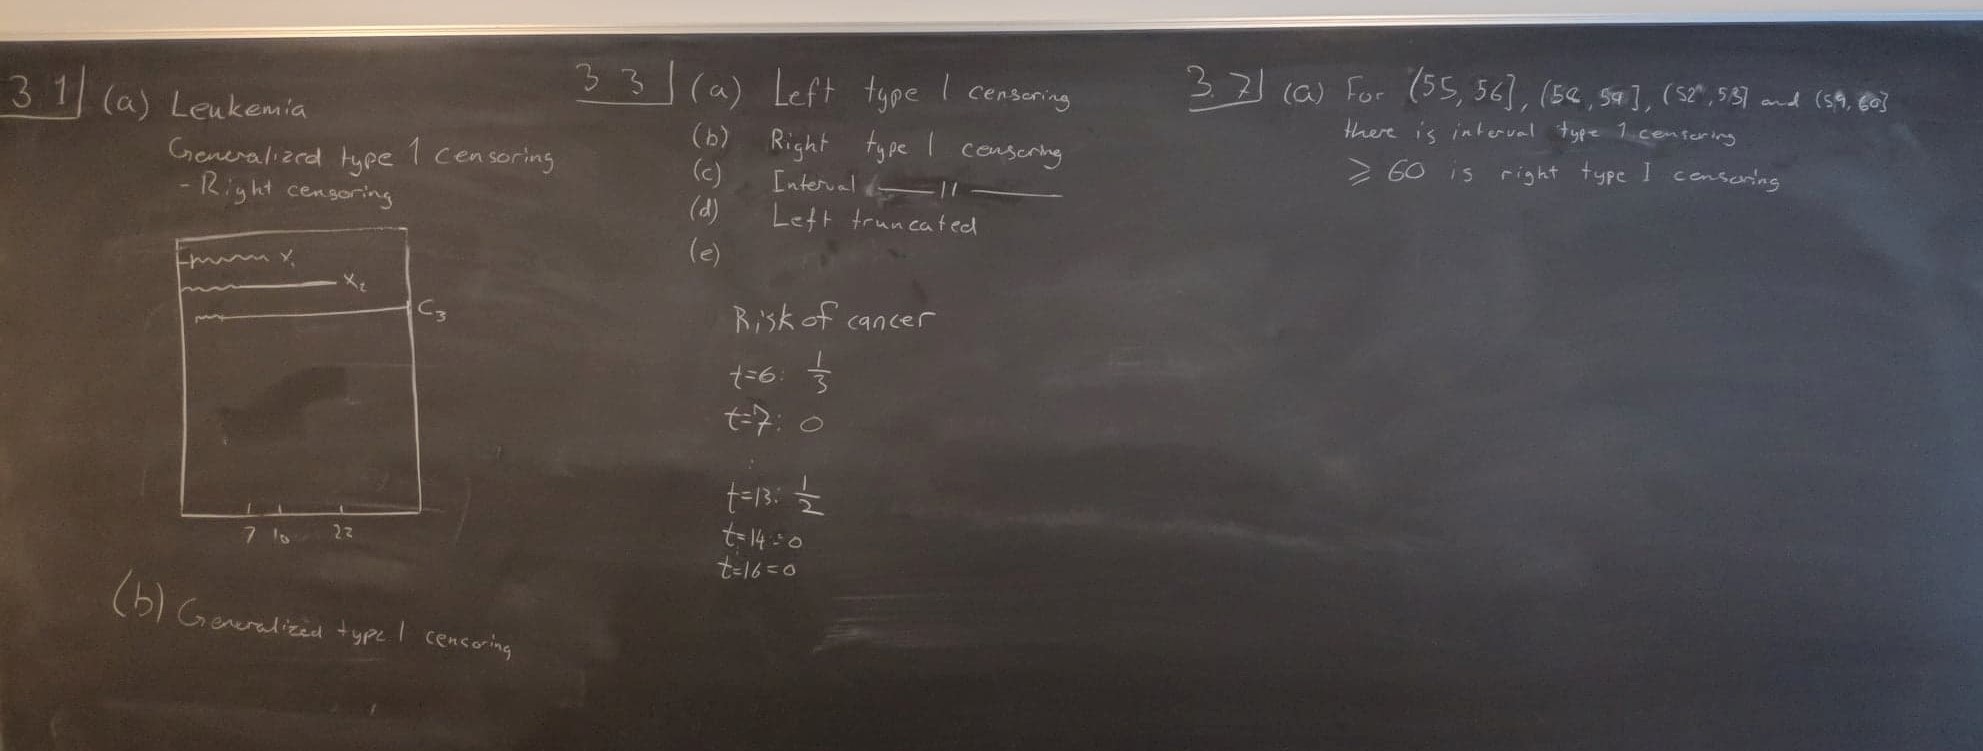 3.1 (a) Leukemia
Generalized type 1 censoring
- Right censoring
x₁
x₂
C₃
7 10 22
(b) Generalized type 1 censoring
3.3 (a) Left type 1 censoring
(b) Right type 1 censoring
(c) Interval —— 11 ——
(d) Left truncated
(e)
Risk of cancer
t=6: 1/3
t=7: 0
⋮
t=13: 1/2
t=14 = 0
t=16 = 0
3.7 (a) For (55, 56], (58, 59], (52, 53] and (59, 60]
there is interval type 1 censoring
≥ 60 is right type I censoring